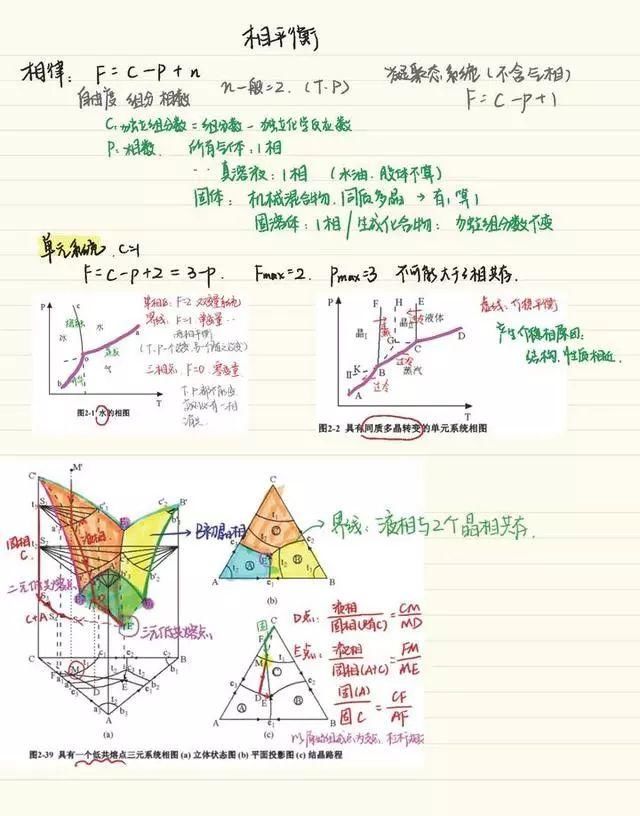 相平衡
相律: F=C-P+n n一般=2. (T.P) 凝聚态系统(不含气相)
自由度 组分 相数 F=C-P+1
C:独立组分数=组分数-独立化学反应数
P:相数. 所有气体:1相
真溶液:1相 (水油.胶体不算)
固体: 机械混合物.同质多晶→有1算1
固溶体:1相/生成化合物:独立组分数不变
单元系统 C=1
F=C-P+2=3-P. Fmax=2. Pmax=3 不可能大于3相共存.
P
c
水
冰
水
a
o
蒸汽
气
b
T
图2-1 水的相图
单相区:F=2 双变量系统
界线:F=1 单变量
两相平衡
三相点:F=0.零变量
T.P都不可变
P
F H E
晶
液体
D
G
C
K
B
过冷
蒸汽
A
T
图2-2 具有同质多晶转变的单元系统相图
虚线:介稳平衡
产生介稳相原因:
结构.性质相近.
C'
M'
B'
固相
C.
液相
二元低共熔点
C+A
三元低共熔点
C
M
B
D
E
A
(a)
B初晶相
C
A
B
(b)
界线:液相与2个晶相共存.
C
固
F
M
D
E
A
B
(c)
D点: 液相/固相(只有C)=CM/MD
E点: 液相/固相(A+C)=FM/ME
固(A)/固C=CF/AF
以原始组成点为支点.杠杆规则
图2-39 具有一个低共熔点三元系统相图 (a) 立体状态图 (b) 平面投影图 (c) 结晶路程